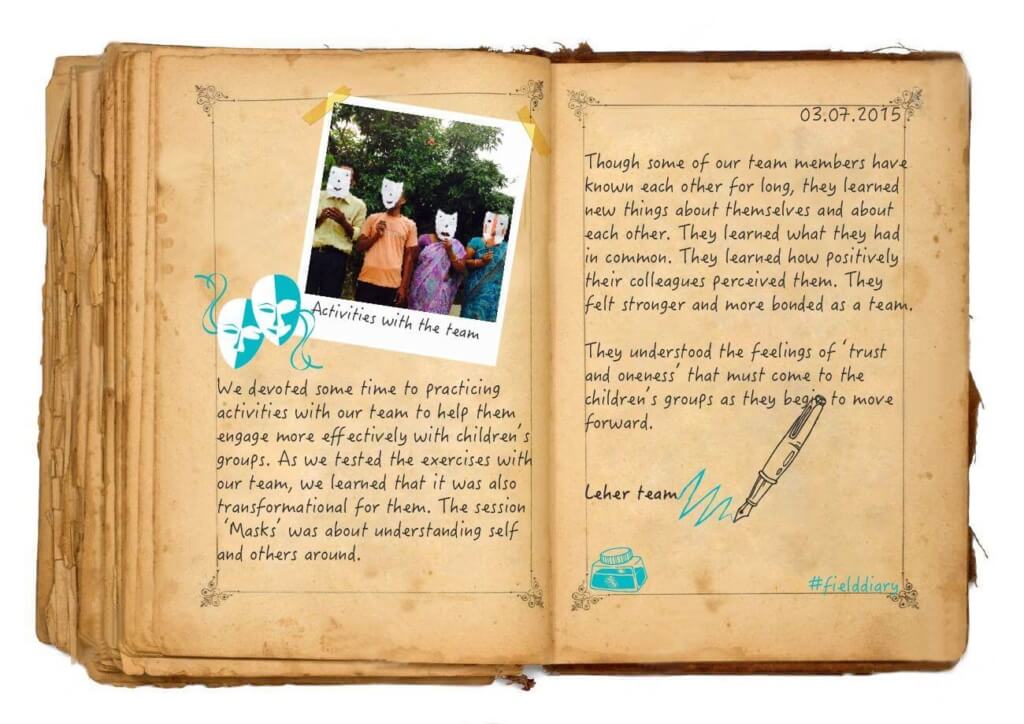 Activities with the team
We devoted some time to practicing
activities with our team to help them
engage more effectively with children's
groups. As we tested the exercises with
our team, we learned that it was also
transformational for them. The session
'Masks' was about understanding self
and others around.
03.07.2015
Though some of our team members have
known each other for long, they learned
new things about themselves and about
each other. They learned what they had
in common. They learned how positively
their colleagues perceived them. They
felt stronger and more bonded as a team.
They understood the feelings of 'trust
and oneness' that must come to the
children's groups as they begin to move
forward.
Leher team
#fielddiary